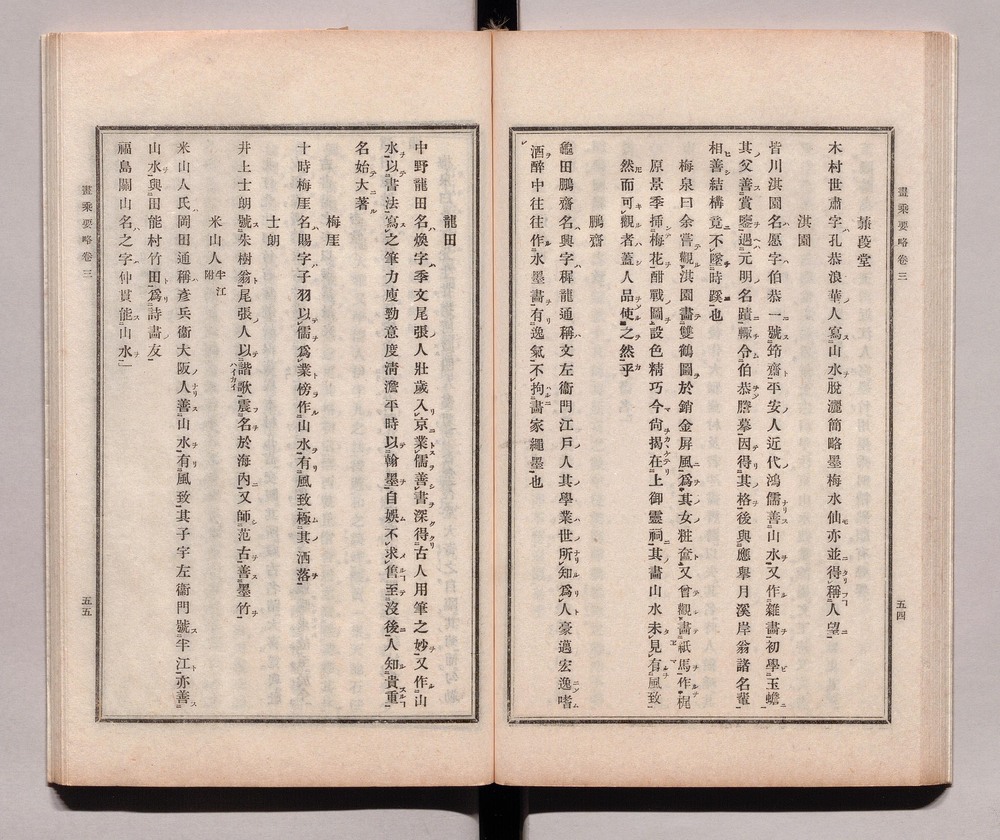 畫乘要略卷三
五四
蒹葭堂
木村世肅字孔恭浪華人寫山水脫灑簡略墨梅水仙亦並得稱人望
淇園
皆川淇園名愿字伯恭一號筇齋平安人近代鴻儒善山水又作雜畫初學玉蟾
其父善賞鑒遇元明名蹟輙令伯恭謄摹因得其格後與應擧月溪岸翁諸名輩
相善結構竟不墜時蹊也
梅泉曰余嘗觀淇園畫雙鶴圖於銷金屏風爲其女粧奩又曾觀畫祇馬作梶
原景季揷梅花酣戰圖設色精巧今尙揭在上御靈祠其畫山水未見有風致
然而可觀者蓋人品使之然乎
鵬齋
龜田鵬齋名興字穉龍通稱文左衞門江戶人其學業世所知爲人豪邁宏逸嗜
酒醉中往往作水墨畫有逸氣不拘畫家繩墨也
龍田
中野龍田名煥字季文尾張人壯歲入京業儒善書深得古人用筆之妙又作山
水以書法寫之筆力瘦勁意度淸澹平時以翰墨自娛不求售至沒後人知貴重
名始大著
梅厓
十時梅厓名賜字子羽以儒爲業傍作山水有風致極其洒落
士朗
井上士朗號朱樹翁尾張人以諧歌震名於海內又師范古善墨竹
米山人 附 半江
米山人氏岡田通稱彥兵衞大阪人善山水有風致其子宇左衞門號半江亦善
山水與田能村竹田爲詩畫友
福島關山名之字仲貫能山水」
畫乘要略卷三
五五